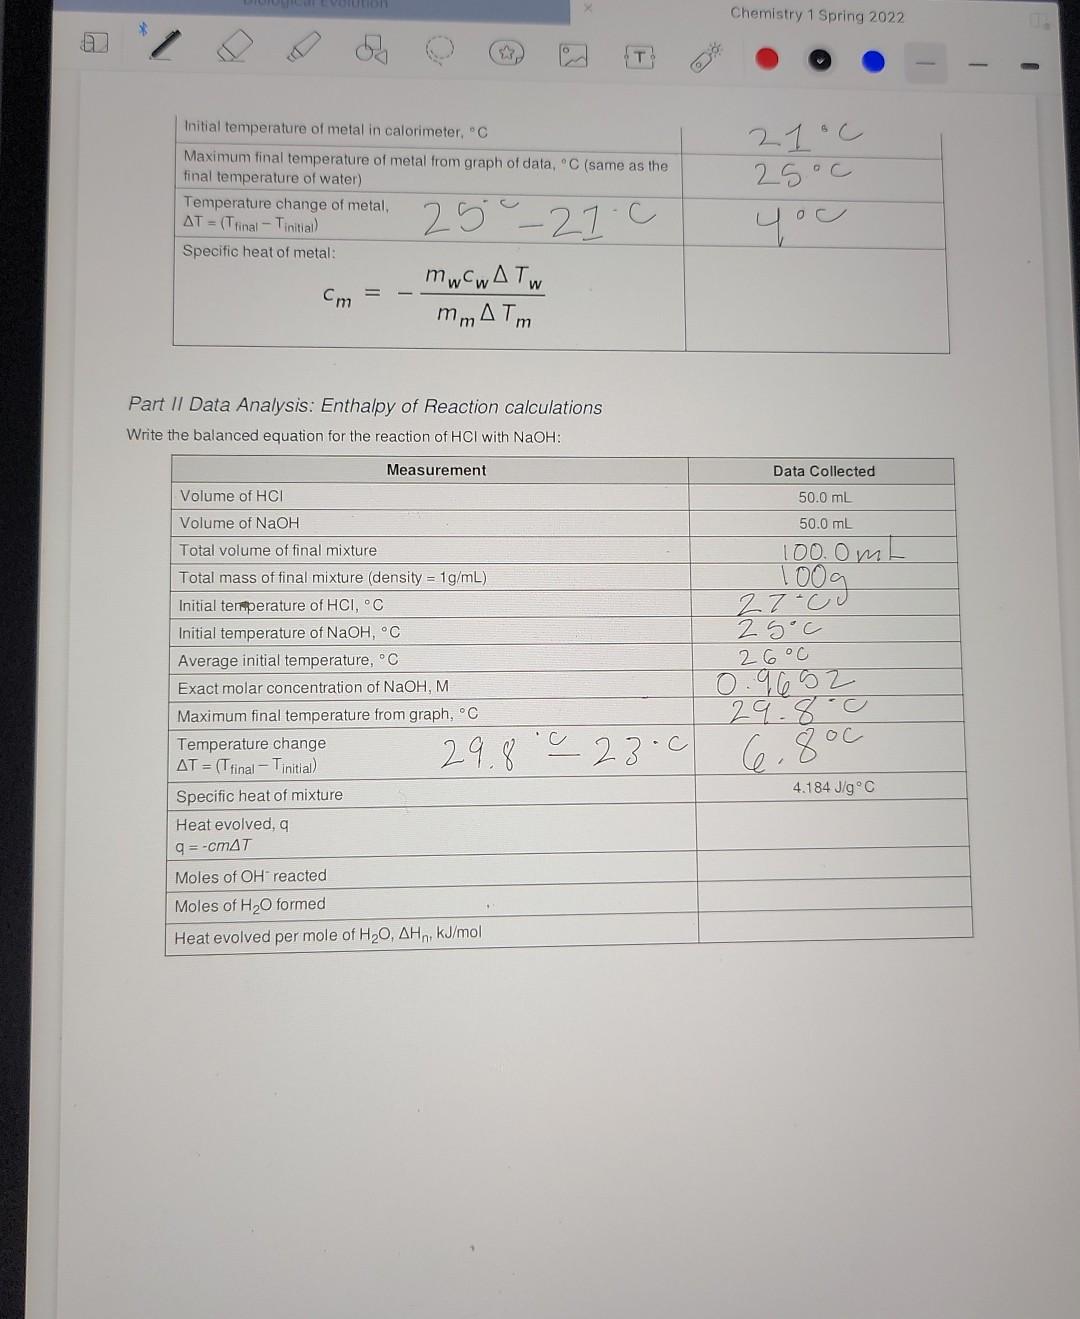 Biological Evolution
Chemistry 1 Spring 2022
T
Initial temperature of metal in calorimeter, °C 21°C
Maximum final temperature of metal from graph of data, °C (same as the
final temperature of water) 25°C
Temperature change of metal,
ΔT = (Tfinal – Tinitial) 25°C – 21°C 4°C
Specific heat of metal:
cm = – mwcwΔTw / mmΔTm
Part II Data Analysis: Enthalpy of Reaction calculations
Write the balanced equation for the reaction of HCl with NaOH:
Measurement Data Collected
Volume of HCl 50.0 mL
Volume of NaOH 50.0 mL
Total volume of final mixture 100.0mL
Total mass of final mixture (density = 1g/mL) 100g
Initial temperature of HCl, °C 27°C
Initial temperature of NaOH, °C 25°C
Average initial temperature, °C 26°C
Exact molar concentration of NaOH, M 0.9652
Maximum final temperature from graph, °C 29.8°C
Temperature change
ΔT = (Tfinal – Tinitial) 29.8°C – 23°C 6.8°C
Specific heat of mixture 4.184 J/g°C
Heat evolved, q
q = -cmΔT
Moles of OH⁻ reacted
Moles of H₂O formed
Heat evolved per mole of H₂O, ΔHn, kJ/mol